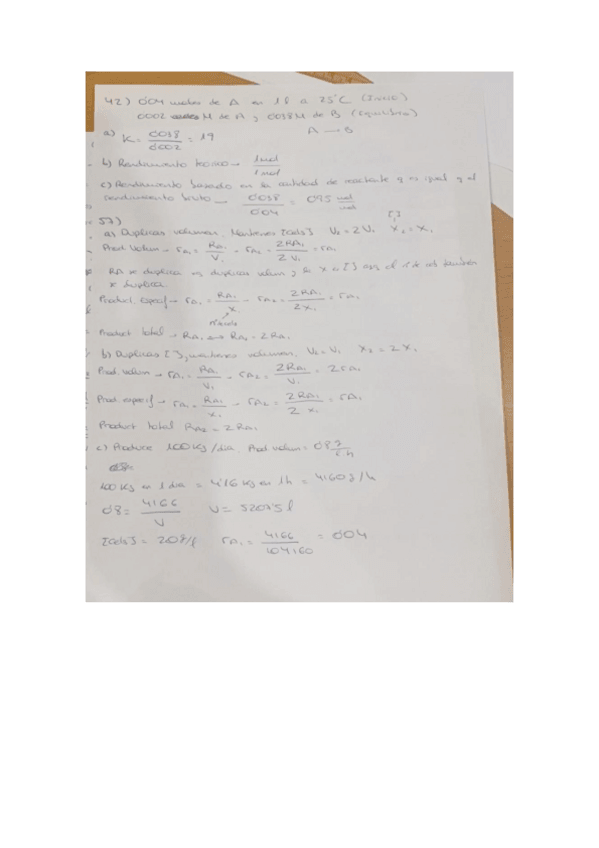 42) 0'04 moles de A en 1 l a 25°C (Inicial)
0'002 M de A y 0'038 M de B (equilibrio)
a) K = 0'038 / 0'002 = 19 A → B
b) Rendimiento teórico → 1 mol / 1 mol
c) Rendimiento basado en la cantidad de reactante q es igual q el
rendimiento bruto → 0'038 / 0'04 = 0'95 mol/mol
57) [ ]
a) Duplicas volumen, Mantienes [cads] V₂ = 2V₁ X₂ = X₁
Prod. Volum → rA₁ = RA₁ / V₁ → rA₂ = 2RA₁ / 2V₁ = rA₁
RA se duplica duplicas volum, si X
se duplica.
Product. especif → rA₁ = RA₁ / X₁ → rA₂ = 2RA₁ / 2X₁ = rA₁
Product total → RA₁ RA₂ = 2RA₁
b) Duplicas [ ], mantienes volumen, V₂ = V₁ X₂ = 2X₁
Prod. volum → rA₁ = RA₁ / V₁ → rA₂ = 2RA₁ / V₁ = 2rA₁
Prod. especif → rA₁ = RA₁ / X₁ → rA₂ = 2RA₁ / 2X₁ = rA₁
Product total RA₂ = 2RA₁
c) Produce 100 Kg/dia. Prod. volum = 0'8 g / l·h
100 Kg en 1 dia = 4'16 Kg en 1h = 4160 g/h
0'8 = 4166 / V V = 5207'5 l
[cads] = 20 g/l rA₁ = 4166 / 104160 = 0'04